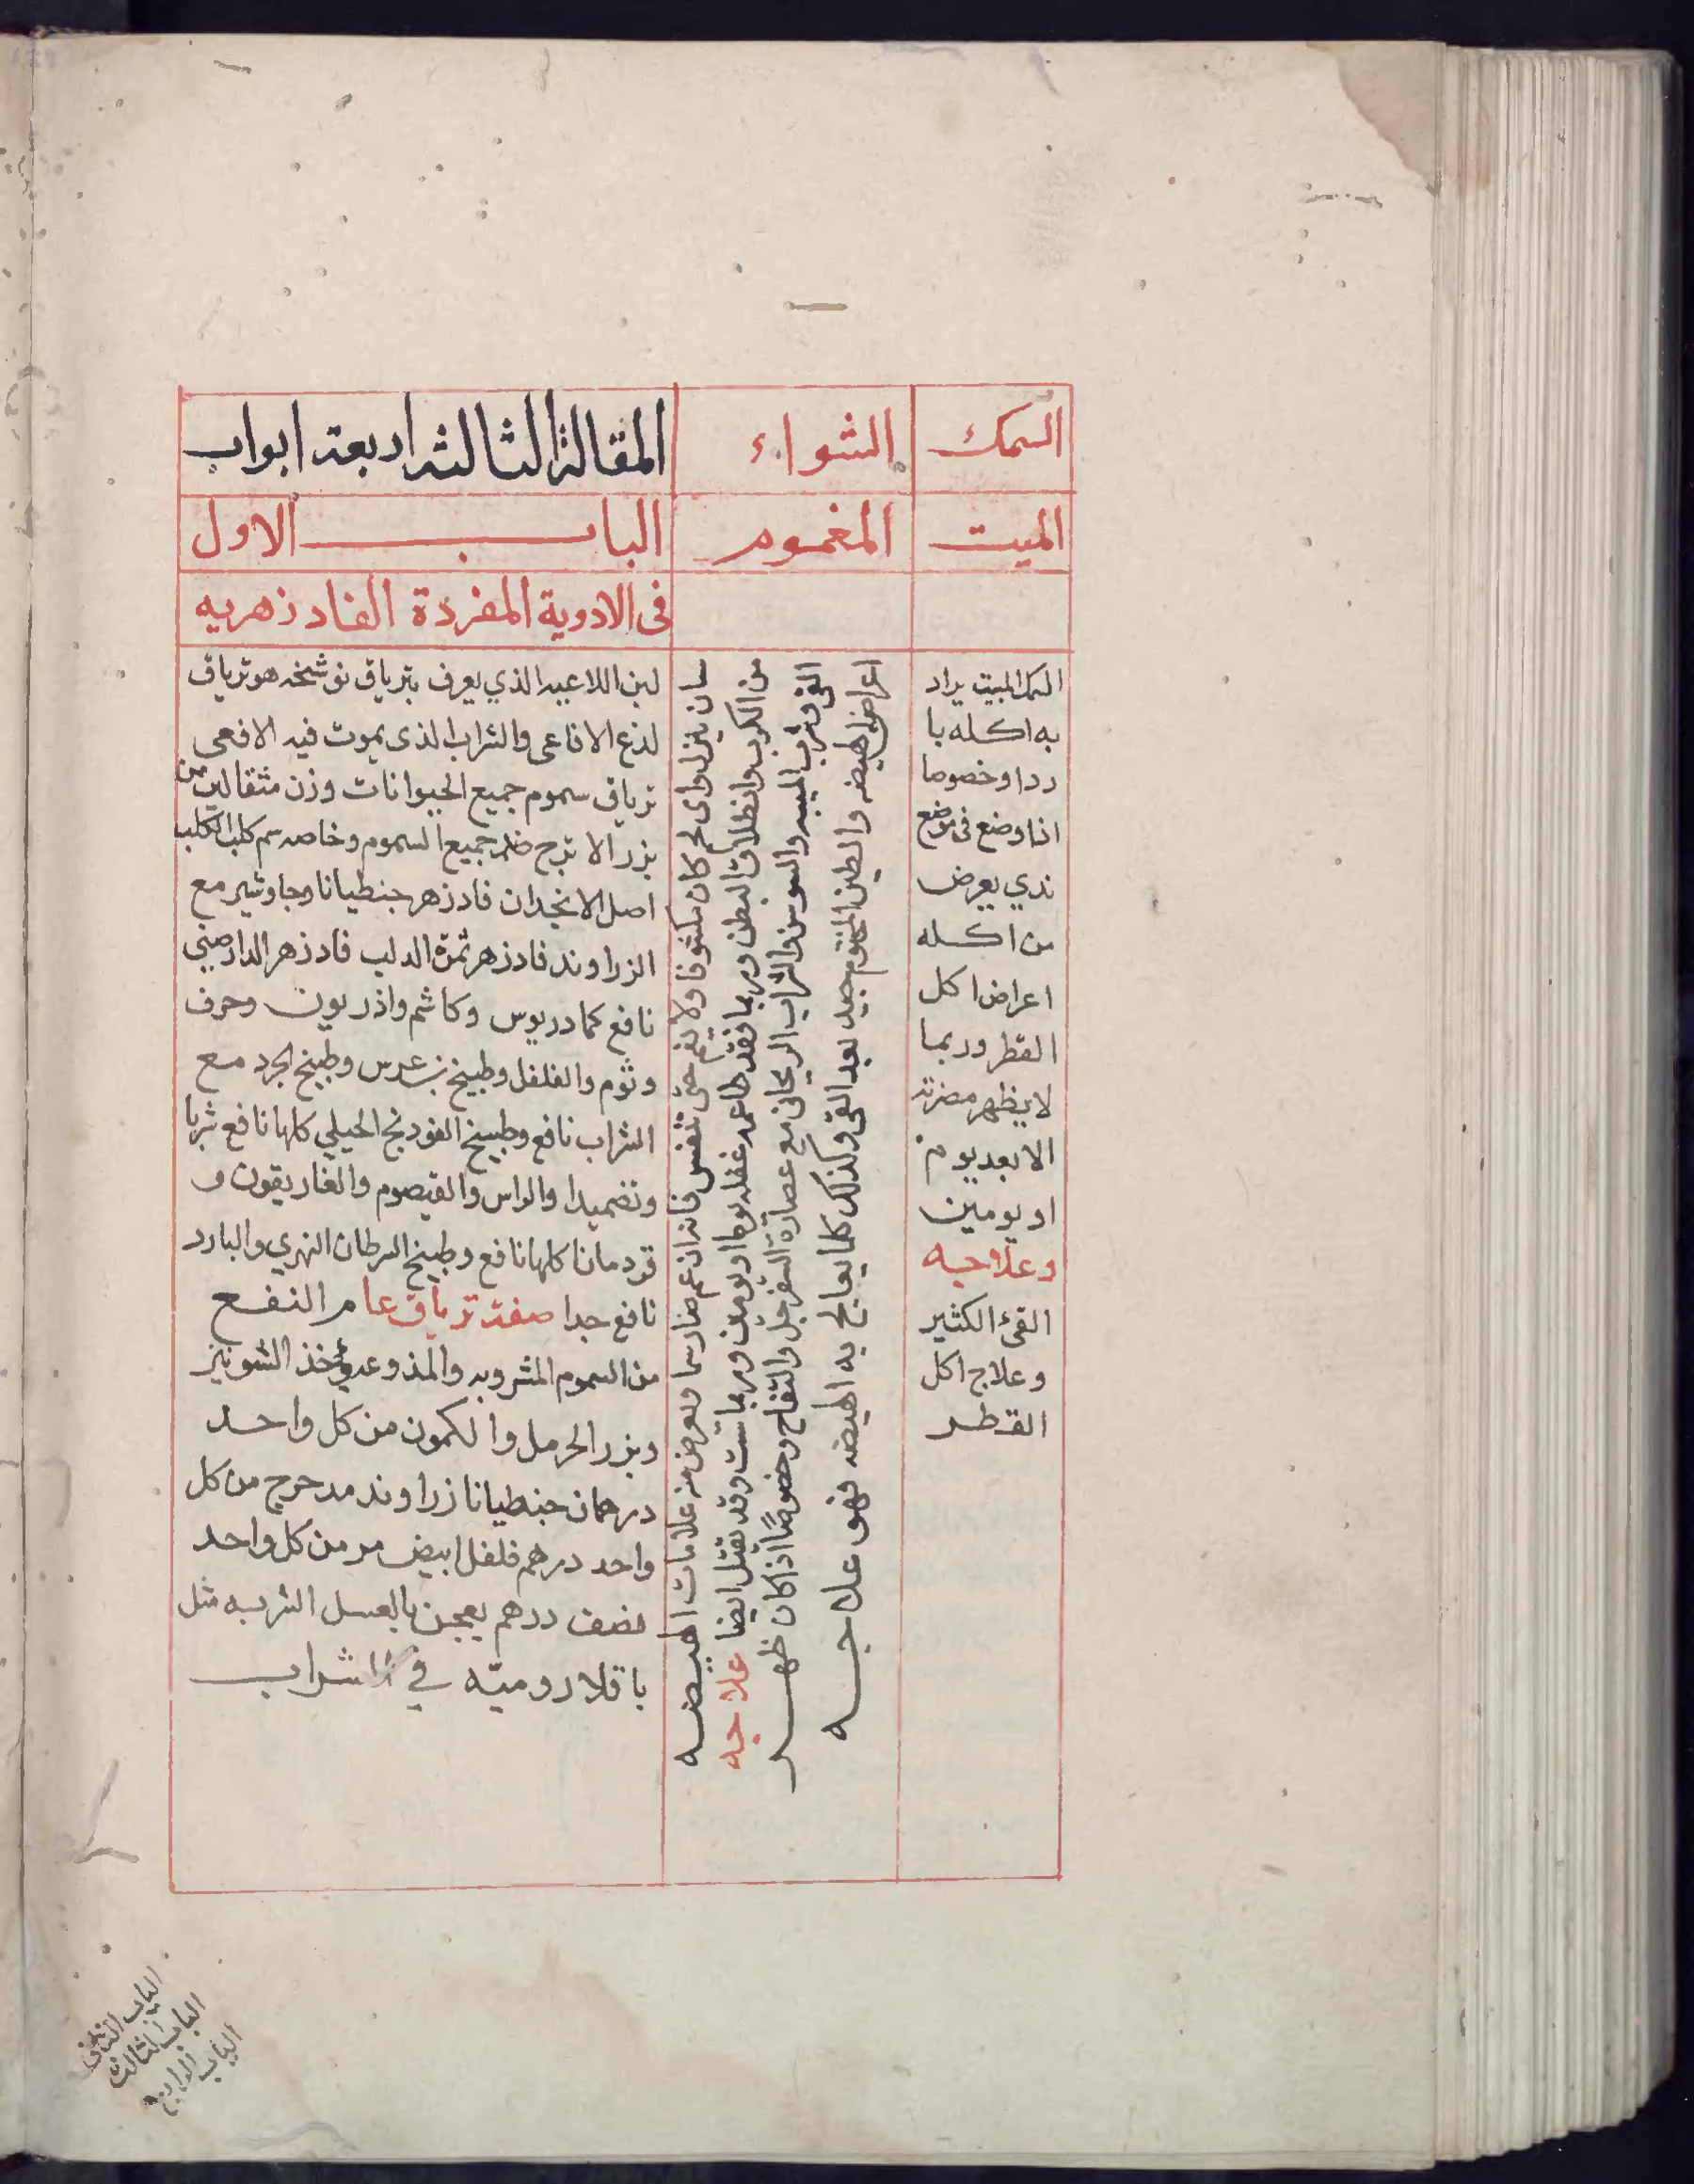 السمك
الميت
السمك الميت يراد
به اكله با
ردا وخصوصا
اذا وضع فى موضع
ندي يعرض
من اكله
اعراض اكل
القطر وربما
لا يظهر مضرته
الا بعد يوم
او يومين
وعلاجه
القئ الكثير
وعلاج اكل
القطر
الشواء
المغموم
شان ينزل واى لحم كان مكشوفا ولا يغم حتى تنفس فانه ان غم صار سما ويعرض منه علامات الهيضه
من الكرب وانطلاق البطن وربما فقد طاعمه عقله يوما او يومين وربما سبت وقد يقتل ايضا علاجه
القئ وشرب الميبه والسوسن والشراب الريحانى مع عصارة السفرجل والتفاح وخصوصًا اذا كان ظهر
اعراض الهيضه والطين المختوم جيد بعد القئ وكذلك كلما يعالج به الهيضه فهو علاجه
المقالة الثالثة اربعة ابواب
الباب الاول
فى الادوية المفردة الفادزهريه
لبن اللاعيه الذي يعرف بترياق نوشخه هو ترياق
لذع الافاعى والشراب الذى يموت فيه الافعى
ترياق سموم جميع الحيوانات وزن مثقالين من
بزر الاترج ضد جميع السموم وخاصه سم كلب الكلب
اصل الانجدان فادزهر جنطيانا وجاوشير مع
الزراوند فادزهر ثمرة الدلب فادزهر الدارصيني
نافع كمادريوس وكاشم واذريون وحرف
وثوم والفلفل وطبيخ بنبعدس وطبيخ الجرد مع
الشراب نافع وطبيخ الفودنج الجبلي كلها نافع شربا
وتضميدا والراس والقيصوم والغاريقون و
قردمانا كلها نافع وطبيخ السرطان النهري والبارد
نافع جدا صفة ترياق عام النفع
من السموم المشروبه والملذوعه يؤخذ الشونيز
وبزر الحرمل والكمون من كل واحد
درهمان جنطيانا زراوند مدحرج من كل
واحد درهم فلفل ابيض مر من كل واحد
نصف درهم يعجن بالعسل الشربه مثل
باقلا روميّه في الشراب
الباب الثانى
الباب الثالث
الباب الرابع